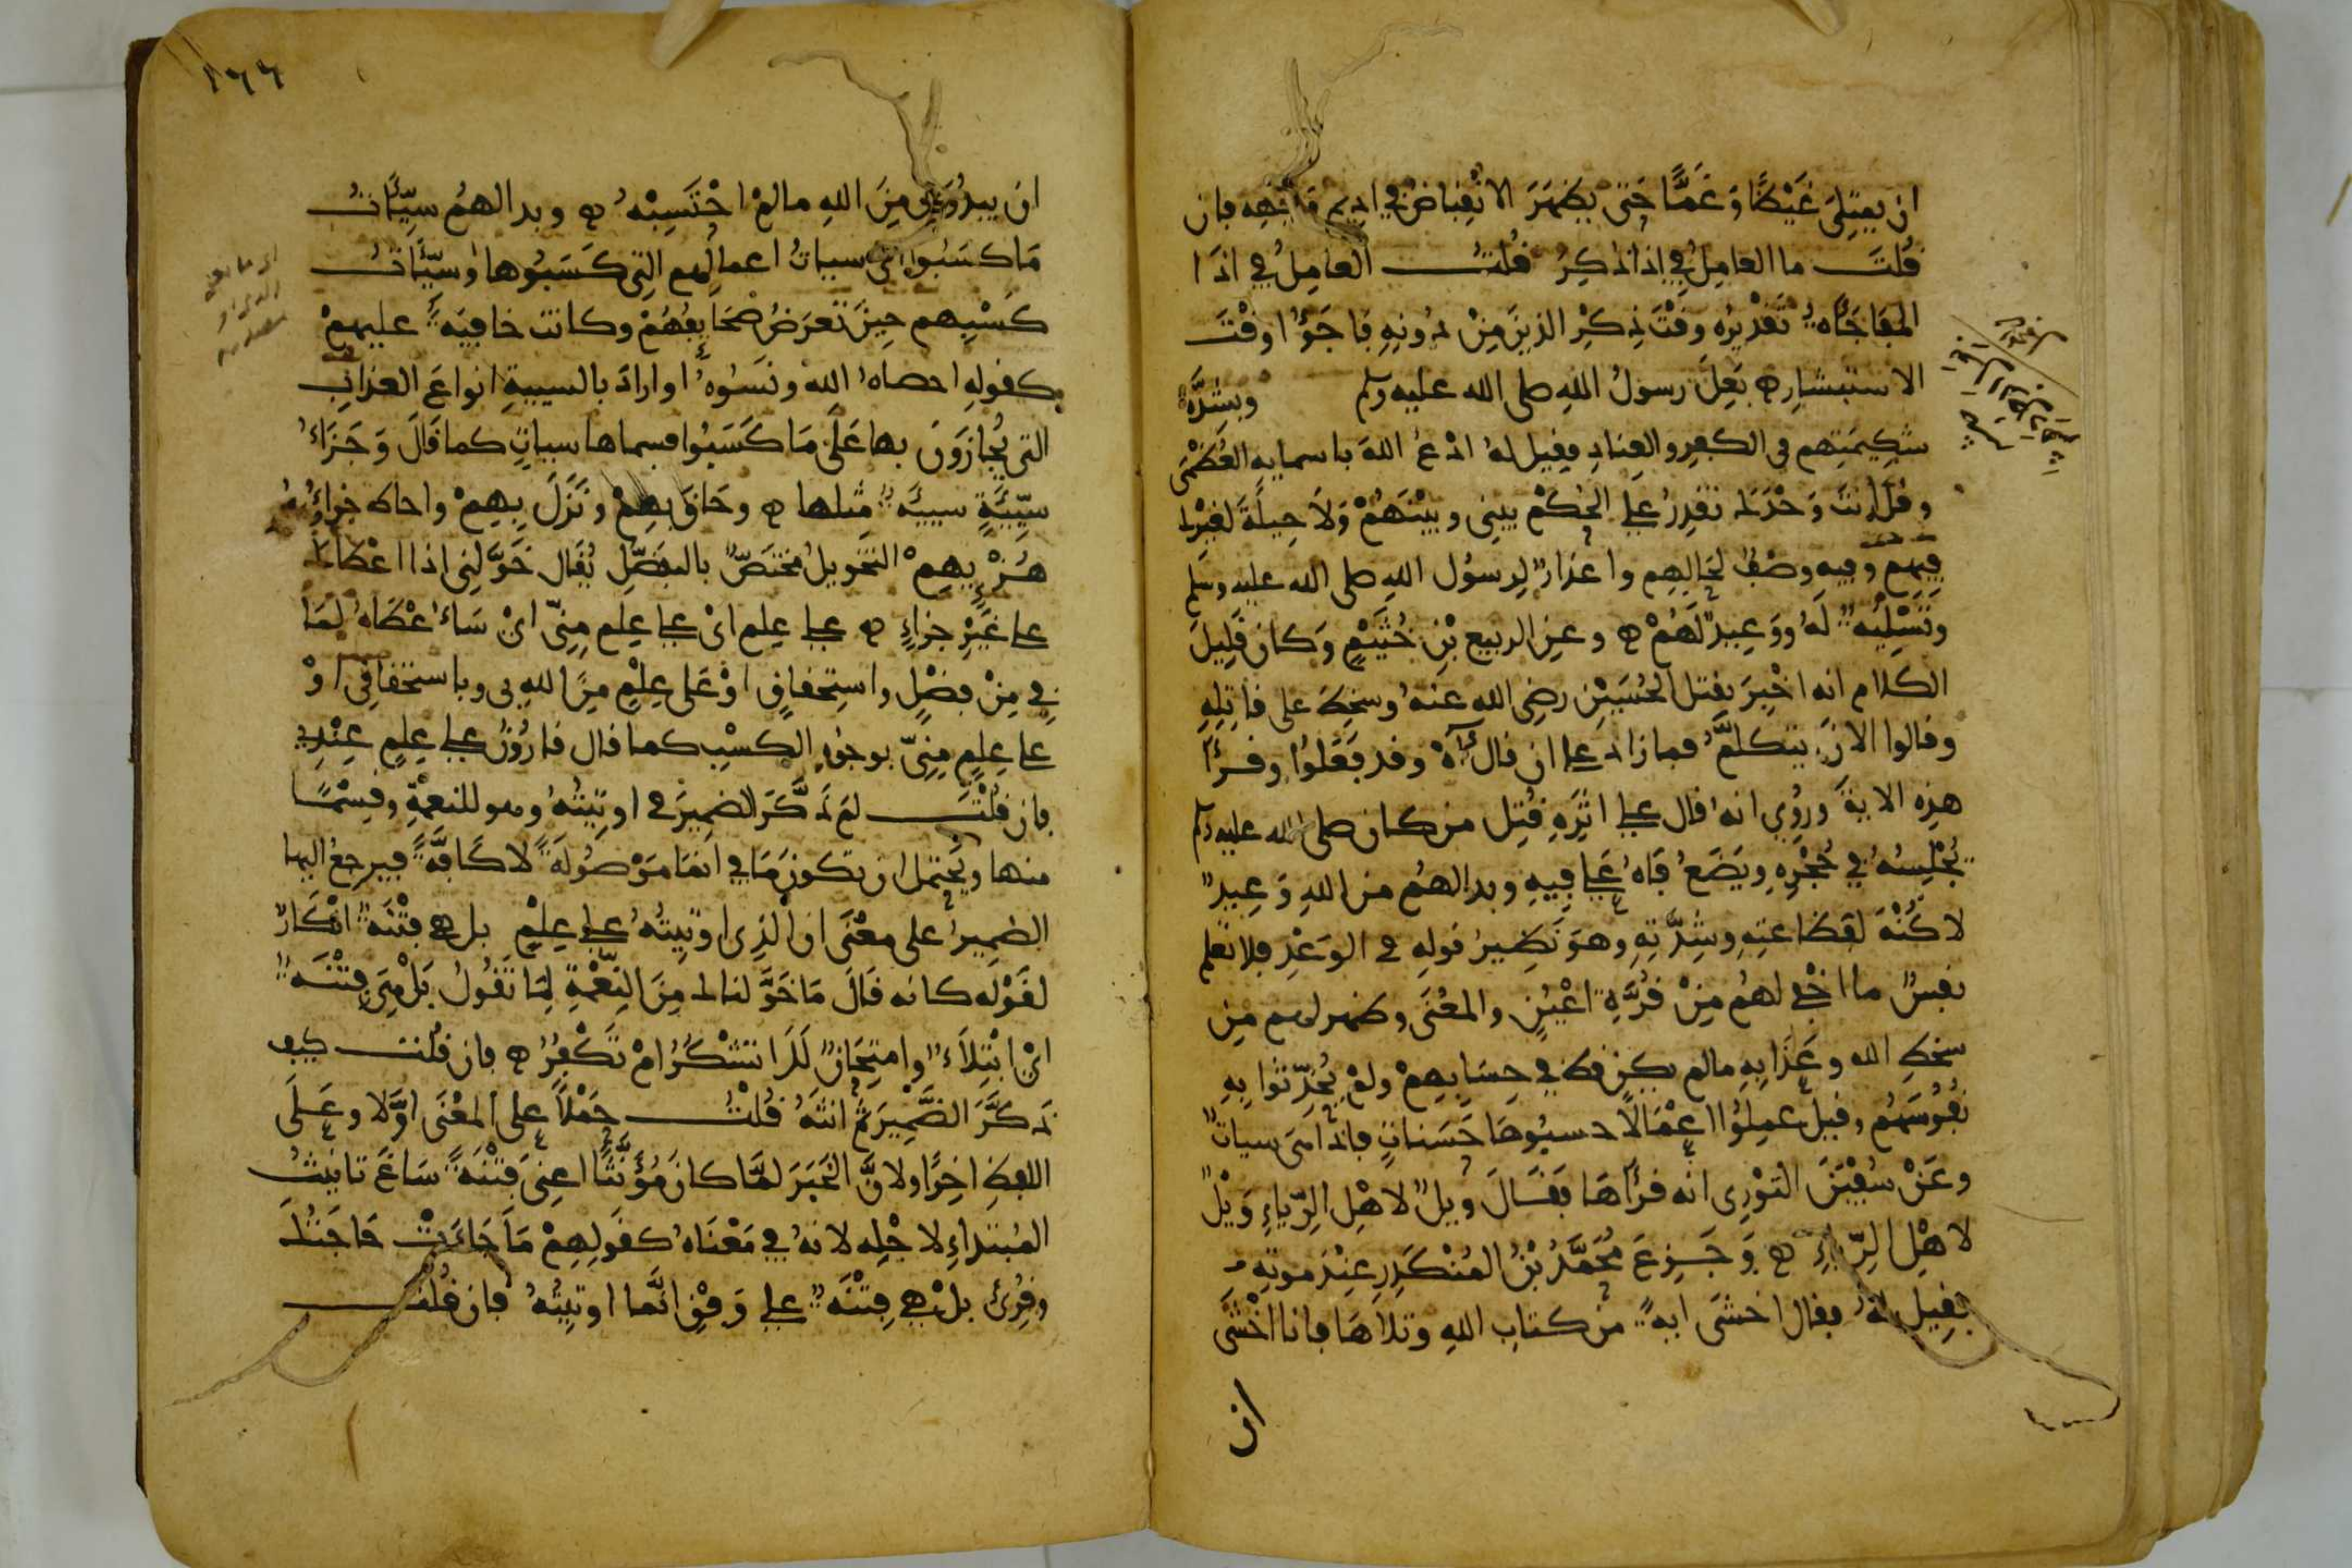 ان يمتلئ غيظا وغما حتى يظهر الانقباض في اديم وجهه فان
قلت ما العامل في اذا ذكر قلت العامل في اذا
المفاجأه تقديره وقت ذكر الذين من دونه فاجؤا وقت
الاستبشار بعل رسول الله صلى الله عليه وسلم وبشدة
شكيمتهم في الكفر والعناد فقيل له ادع الله باسمايه العظمى
وقل انت وحدك تقدر على الحكم بيني وبينهم ولا حيلة لغيرك
فيهم وفيه وصف لحالهم واعذار لرسول الله صلى الله عليه وسلم
وتسلية له ووعيد لهم وعن الربيع بن خثيم وكان قليل
الكلام انه اخبر بقتل الحسين رضي الله عنه وسخط على قاتله
وقالوا الان يتكلم فما زاد على ان قال آه وقد فعلوا وقرأ
هذه الاية وروي انه قال على اثره قتل من كان صلى الله عليه وسلم
يجلسه في حجره ويضع فاه على فيه وبدا لهم من الله وعيد
لا كنه لفظاعته وشدته وهو نظير قوله في الوعد فلا تعلم
نفس ما اخفي لهم من قرة اعين والمعنى وظهر لهم من
سخط الله وعذابه مالم يكن قط في حسابهم ولم يحدثوا به
نفوسهم وقيل عملوا اعمالا حسبوها حسنات فاذا هي سيات
وعن سفين الثوري انه قرأها فقال ويل لاهل الرياء ويل
لاهل الرياء وجزع محمد بن المنكدر عند موته
فقيل له فقال اخشى اية من كتاب الله وتلاها فانا اخشى
ان
١٦٦
ان يبدو لي من الله مالم احتسبه وبدا لهم سيئات
ما كسبوا اي سيات اعمالهم التي كسبوها او سيئات
كسبهم حين تعرض صحايفهم وكانت خافية عليهم
كقوله احصاه الله ونسوه او اراد بالسيية انواع العذاب
التي يجازون بها على ما كسبوا فسماها سيات كما قال وجزاء
سيئة سيية مثلها وحاق بهم ونزل بهم واحاط جزاؤه
هزءيهم التخويل مختص بالتفضل يقال خولني اذا اعطاك
على غير جزاء على علم اي على علم مني اني سااعطاه لما
في من فضل واستحقاق او على علم من الله بي وباستحقاقي او
على علم مني بوجوه الكسب كما قال قارون على علم عندي
فان قلت لم ذكر الضمير في اوتيته وهو للنعمة وقسما
منها ويحتمل ان تكون ما في انما موصولة لا كافة فيرجع اليها
الضمير على معنى ان الذي اوتيته على علم بل هي فتنة انكار
لقوله كانه قال ما خولناك من النعمة لما تقول بل هي فتنة
اي ابتلاء وامتحان لك اتشكر ام تكفر فان قلت كيف
ذكر الضمير ثم انثه قلت حملا على المعنى اولا وعلى
اللفظ اخرا ولان الخبر لما كان مؤنثا اعني فتنة ساغ تانيث
المبتداء لاجله لانه في معناه كقولهم ما جاءت حاجتك
وقرئ بل هي فتنة على وفق انما اوتيته فان قلت